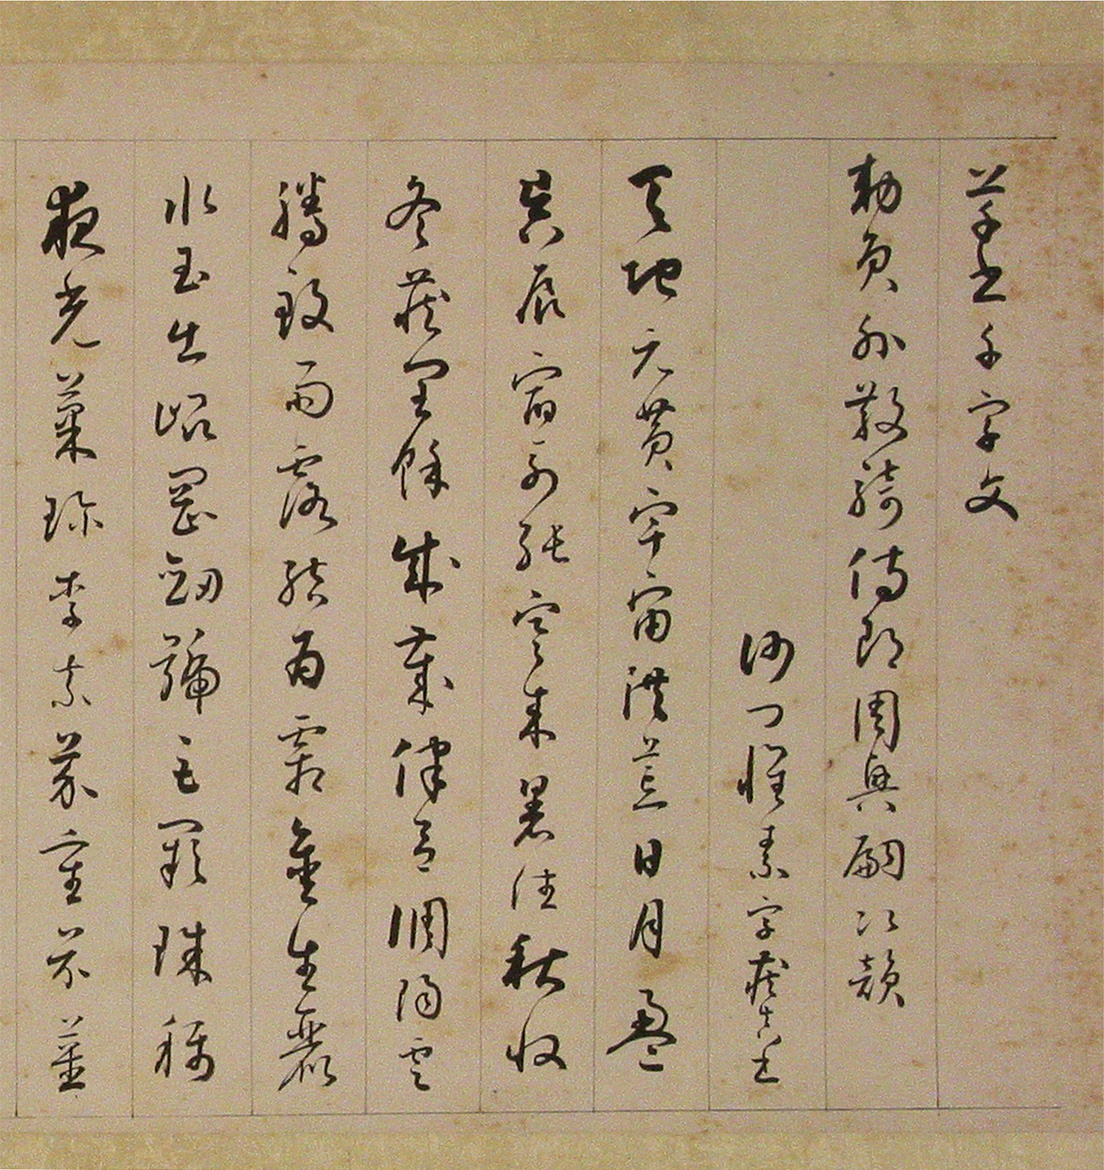 草書千字文
勅員外散騎侍郎周興嗣次韻
沙門懷素字藏真書
天地元黃宇宙洪荒日月盈
昃辰宿列張寒來暑往秋收
冬藏閏餘成歲律召調陽雲
騰致雨露結為霜金生麗
水玉出崐岡劒號巨闕珠稱
夜光菓珍李柰菜重芥薑